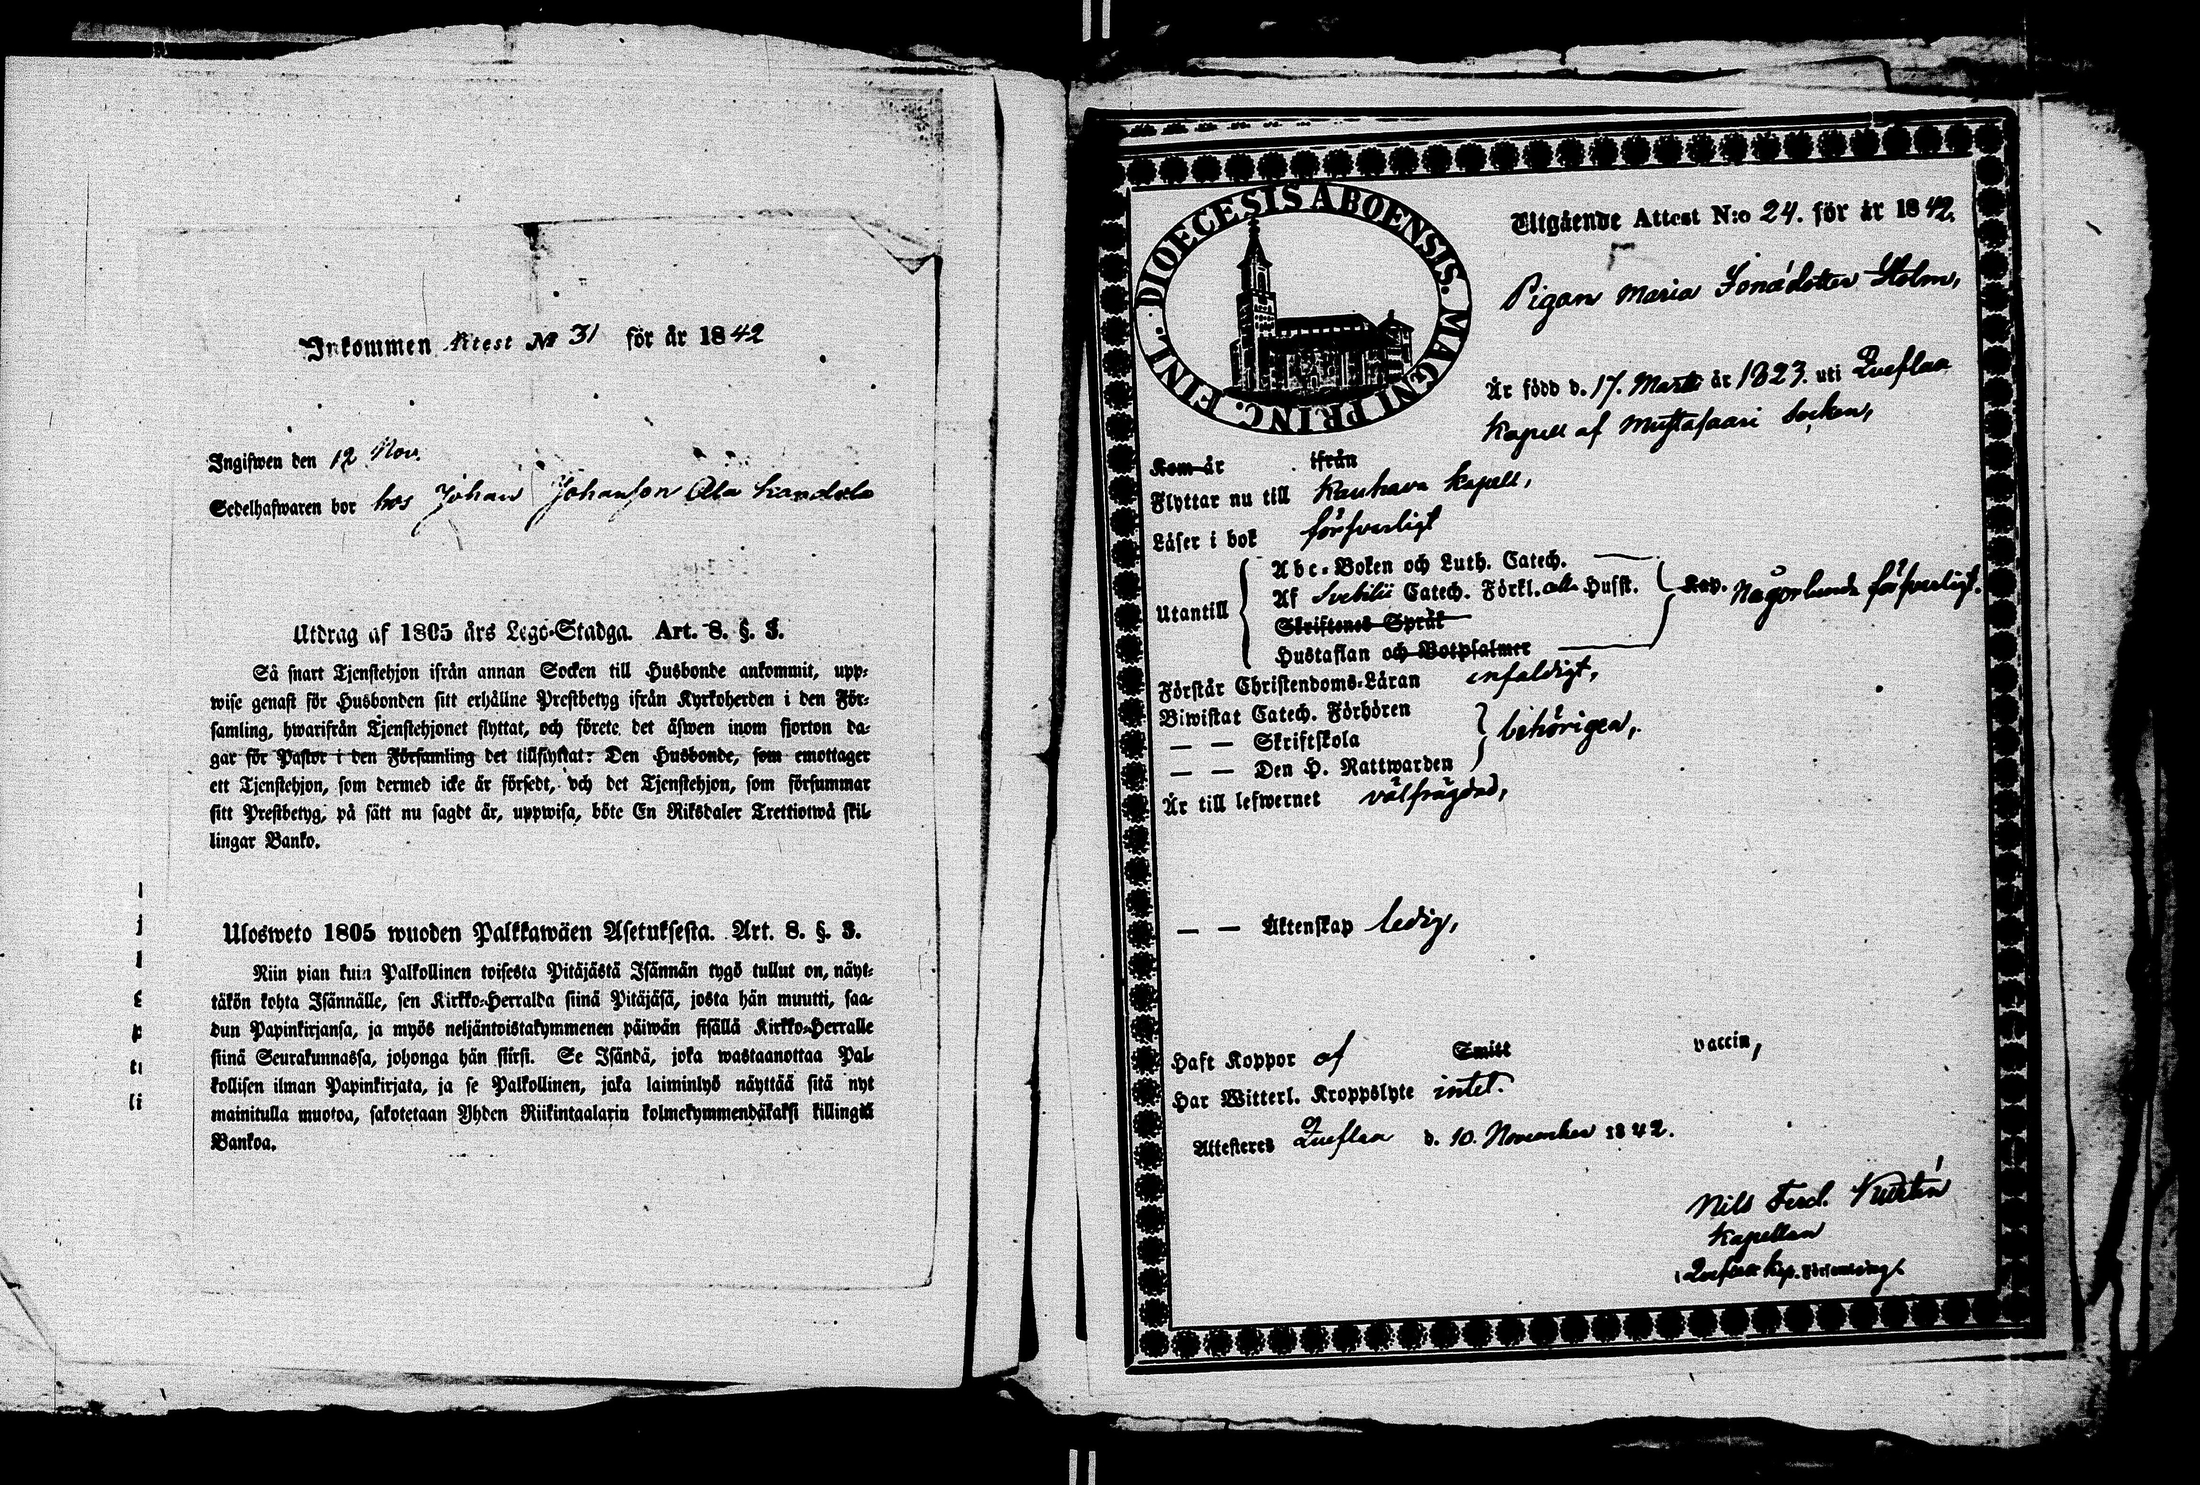 Inkommen Attest No 31 för år 1842
Ingifwen den 12 Nov.
Sedelhafwaren bor hos Johan Johansson Ala
Utdrag af 1805 års Lego-Stadga. Art. 8. §. 3.
Så snart Tjenstehjon ifrån annan Socken till Husbonde ankommit, upp-
wise genast för Husbonden sitt erhållne Prestbetyg ifrån Kyrkoherden i den För-
samling, hwarifrån Tjenstehjonet flyttat, och förete det äfwen inom fjorton da-
gar för Pastor i den Församling det tillflyttat: Den Husbonde, som emottager
ett Tjenstehjon, som dermed icke är försedt, och det Tjenstehjon, som försummar
sitt Prestbetyg, på sätt nu sagdt är, uppwisa, böte En Riksdaler Trettiotwå skil-
lingar Banko.
Ulosweto 1805 wuoden Palkkawäen Asetuksesta. Art. 8. §. 3.
Niin pian kuin Palkollinen toisesta Pitäjästä Isännän tygö tullut on, näyt-
täkön kohta Isännälle, sen Kirkko-Herralda siinä Pitäjäsä, josta hän muutti, saa-
dun Papinkirjansa, ja myös neljäntoistakymmenen päiwän sisällä Kirkko-Herralle
siinä Seurakunnassa, johonga hän siirsi. Se Isändä, joka wastaanottaa Pal-
kollisen ilman Papinkirjata, ja se Palkollinen, joka laiminlyö näyttää sitä nyt
mainitulla muotoa, sakotetaan Yhden Riikintaalarin kolmekymmendäkaksi killingiä
Bankoa.
DIOECESIS ABOENSIS. MAGNI PRINC. FINL.
Utgående Attest N:o 24. för år 1842.
Pigan Maria Jonasdotter Holm,
Är född d. 17. Martii år 1823. uti Qveflax
Kapell af Mustasaari Socken,
Kom år ifrån
Flyttar nu till Kauhava Kapell,
Läser i bok försvarligt
Utantill
Abc-Boken och Luth. Catech.
Af Svebilii Catech. Förkl. alla Hufst.
Skriftenes Språk
Hustaflan och Botpsalmer
Kap. Någorlunda försvarligt.
Förstår Christendoms-Läran enfaldigt,
Biwistat Catech. Förhören
— — Skriftskola
— — Den H. Nattwarden
behörigen,
Är till lefwernet välfrägdad,
— — Äktenskap ledig,
Haft Koppor af Smitt vaccin,
Har Witterl. Kroppslyte intet.
Attesteres Qveflax d. 10. November 1842.
Nils Ferd. Kurtén
Kapellan
i Qveflax Kap. Församling.